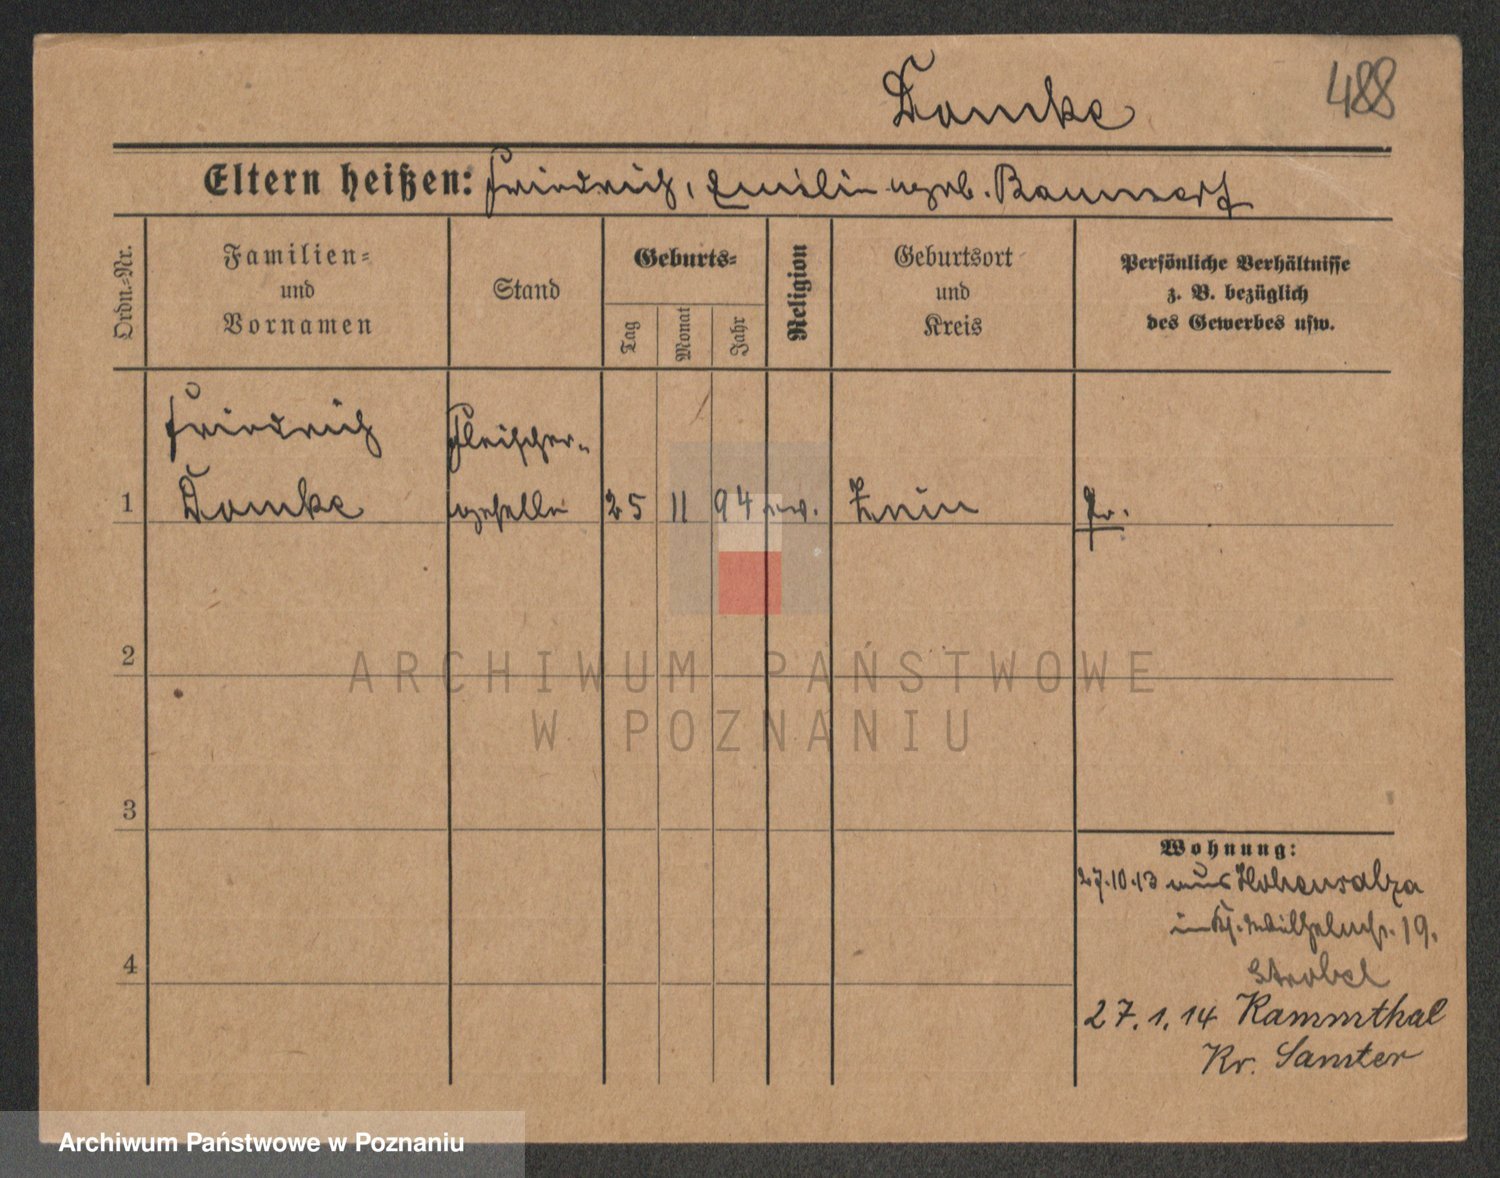 Domke
488
Eltern heißen: Friedrich, Emilie geb. Baumert
Ordn.-Nr.
Familien-
und
Vornamen
Stand
Geburts-
Tag
Monat
Jahr
Religion
Geburtsort
und
Kreis
Persönliche Verhältnisse
z. B. bezüglich
des Gewerbes usw.
1
Friedrich
Domke
Fleischer-
geselle
25
11
94
ev.
Znin
Pr.
2
3
4
Wohnung:
27.10.13 aus Hohensalza
19.
Strobel
27.1.14 Kammthal
Kr. Samter
ARCHIWUM PAŃSTWOWE
W POZNANIU
Archiwum Państwowe w Poznaniu